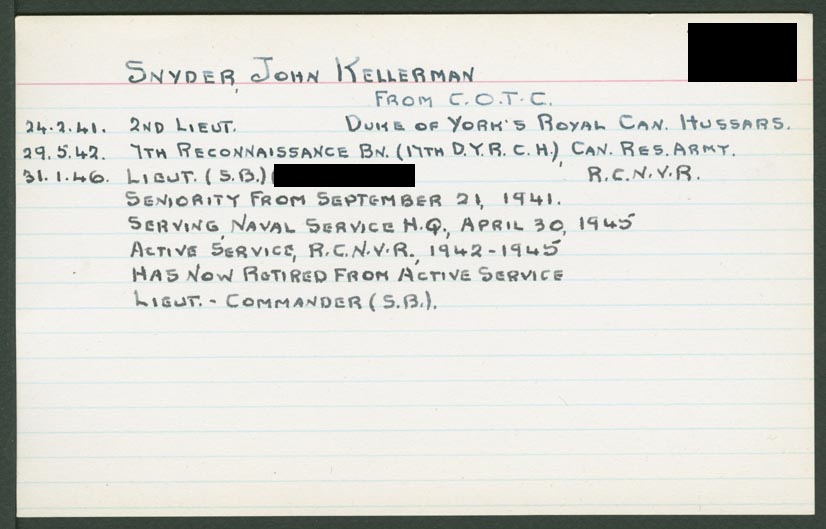 SNYDER, JOHN KELLERMAN
FROM C.O.T.C.
24.2.41. 2ND LIEUT. DUKE OF YORK'S ROYAL CAN. HUSSARS.
29.5.42. 7TH RECONNAISSANCE BN. (17TH D.Y.R.C.H.), CAN. RES. ARMY.
31.1.46. LIEUT. (S.B.) R.C.N.V.R.
SENIORITY FROM SEPTEMBER 21, 1941.
SERVING, NAVAL SERVICE H.Q., APRIL 30, 1945
ACTIVE SERVICE, R.C.N.V.R., 1942-1945
HAS NOW RETIRED FROM ACTIVE SERVICE
LIEUT.-COMMANDER (S.B.).